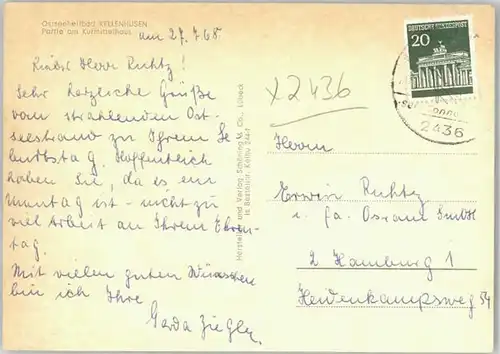 Ostseeheilbad KELLENHUSEN
Partie am Kurmittelhaus
am 27.7.68
Lieber Herr Ruhtz!
Sehr herzliche Grüße
vom strahlenden Ost-
seestrand zu Ihrem Ge
burtstag. Hoffentlich
haben Sie, da es ein
Montag ist - nicht zu
viel Arbeit an Ihrem Ehren-
tag.
Mit vielen guten Wünschen
bin ich Ihre
Gerda Ziegler
Herstellung und Verlag Schöning & Co., Lübeck
X 2436
20
DEUTSCHE BUNDESPOST
2436
Herrn
Erwin Ruhtz
i. Fa. Osram GmbH
2 Hamburg 1
Heidenkampsweg 54